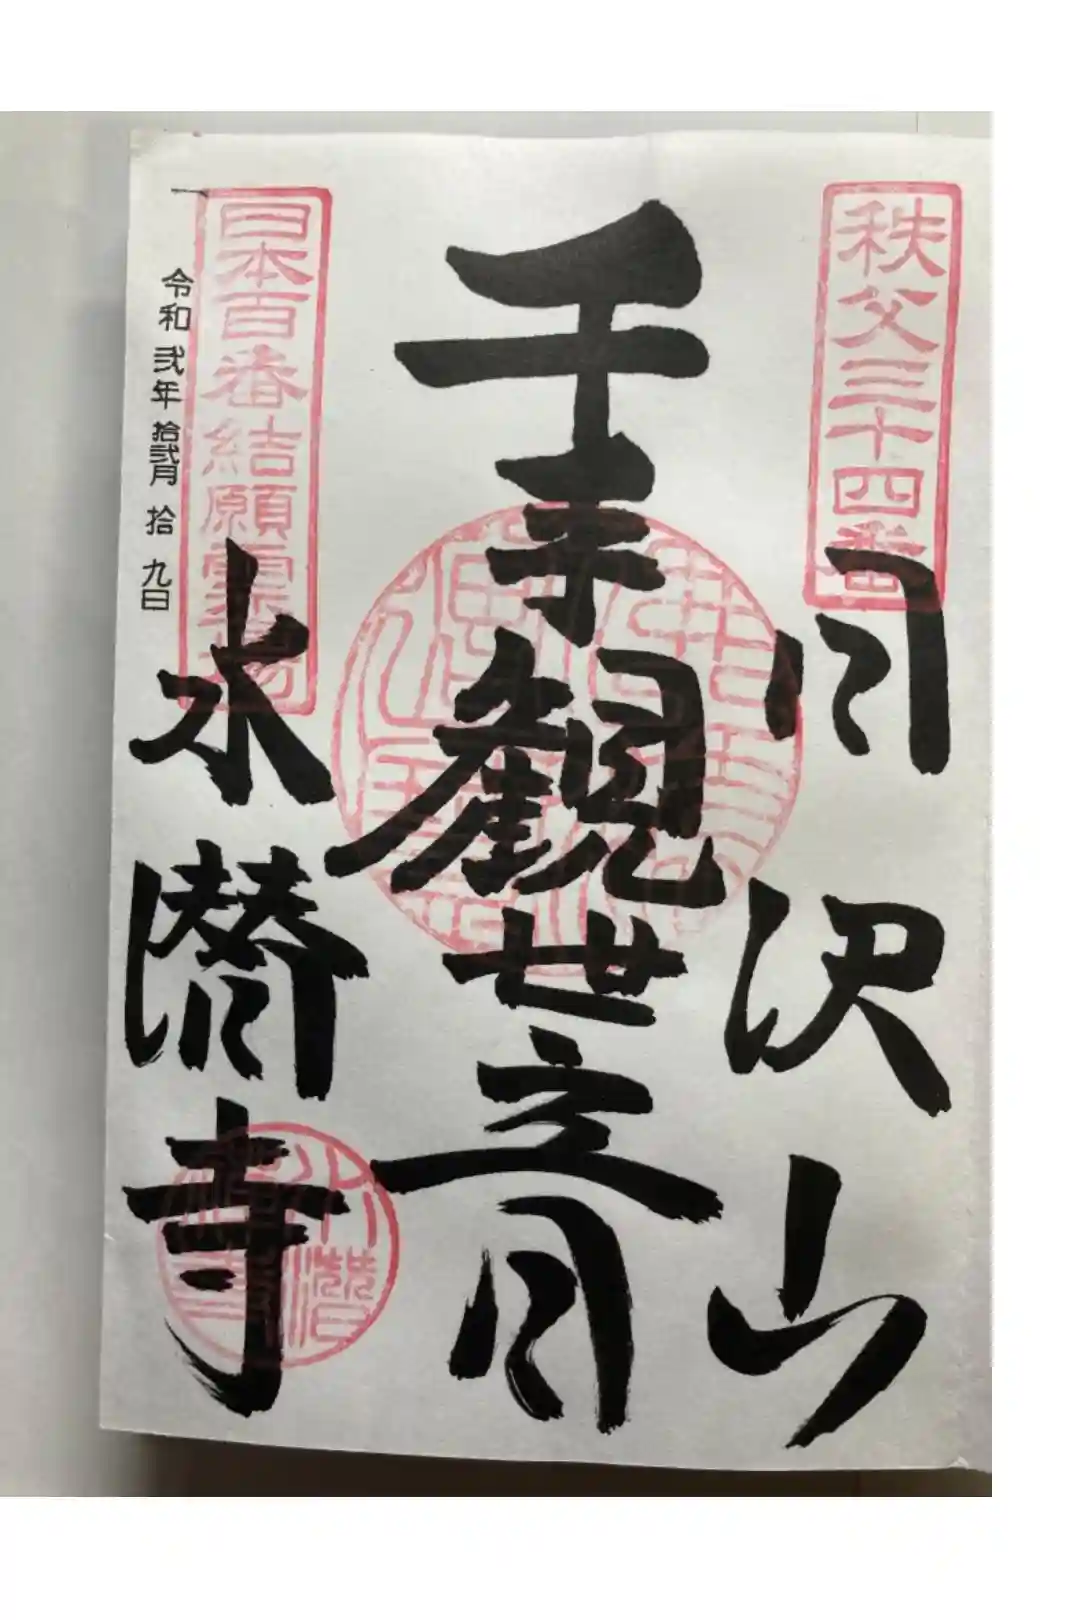 秩父三十四番
日沢山
千手観世音
日本百番結願霊場
水潜寺
令和弐年拾弐月拾九日